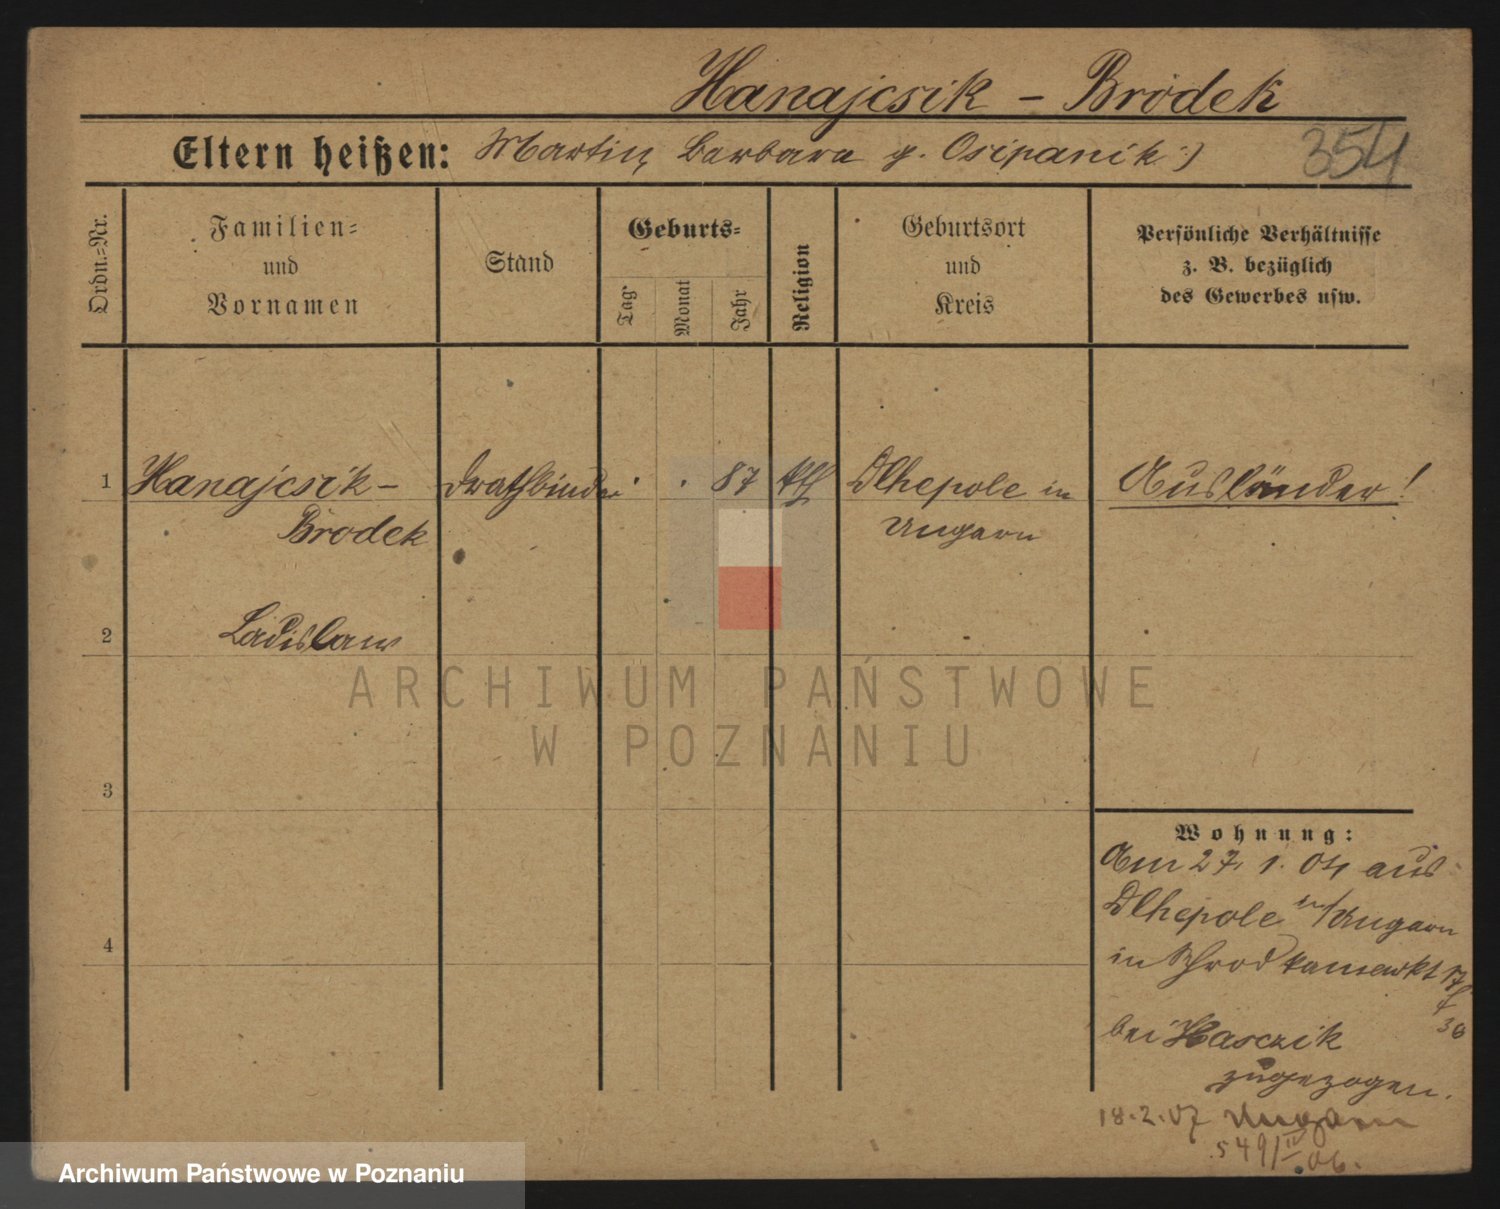 Hanajcsik - Brodek
Eltern heißen: Martin, Barbara g. Osipanik :)
354
Ordn.=Nr.
Familien=
und
Vornamen
Stand
Geburts=
Tag
Monat
Jahr
Religion
Geburtsort
und
Kreis
Persönliche Verhältnisse
z. B. bezüglich
des Gewerbes usw.
1 Hanajcsik - Drathbinder 87 kth Dlhepole in Ausländer!
Brodek Ungarn
2 Ladislaw
3
4
Wohnung:
Am 27. 1. 04 aus
Dlhepole in/Ungarn
in Schrodkamarkt 17
bei Hasczik
zugezogen.
18.2.07 Ungarn
549/IV 06.
ARCHIWUM PAŃSTWOWE
W POZNANIU
Archiwum Państwowe w Poznaniu